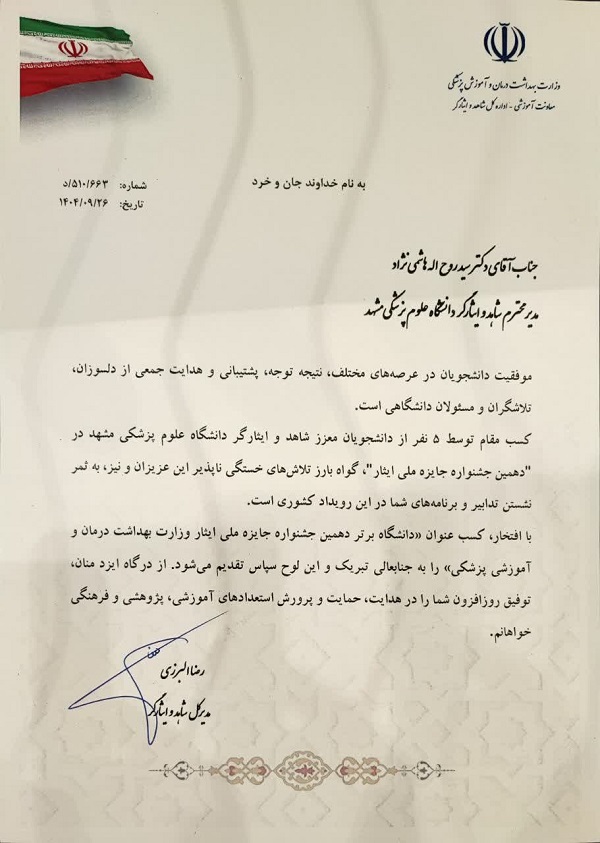 وزارت بهداشت درمان و آموزش پزشکی
معاونت آموزشی - اداره کل شاهد و ایثارگر
به نام خداوند جان و خرد
شماره: ۵۱۰/۶۶۳/د
تاریخ: ۱۴۰۴/۰۹/۲۶
جناب آقای دکتر سید روح اله هاشمی نژاد
مدیر محترم شاهد و ایثارگر دانشگاه علوم پزشکی مشهد
موفقیت دانشجویان در عرصه‌های مختلف، نتیجه توجه، پشتیبانی و هدایت جمعی از دلسوزان،
تلاشگران و مسئولان دانشگاهی است.
کسب مقام توسط ۵ نفر از دانشجویان معزز شاهد و ایثارگر دانشگاه علوم پزشکی مشهد در
"دهمین جشنواره جایزه ملی ایثار"، گواه بارز تلاش‌های خستگی ناپذیر این عزیزان و نیز، به ثمر
نشستن تدابیر و برنامه‌های شما در این رویداد کشوری است.
با افتخار، کسب عنوان «دانشگاه برتر دهمین جشنواره جایزه ملی ایثار وزارت بهداشت درمان و
آموزشی پزشکی» را به جنابعالی تبریک و این لوح سپاس تقدیم می‌شود. از درگاه ایزد منان،
توفیق روزافزون شما را در هدایت، حمایت و پرورش استعدادهای آموزشی، پژوهشی و فرهنگی
خواهانم.
رضا البرزی
مدیر کل شاهد و ایثارگر